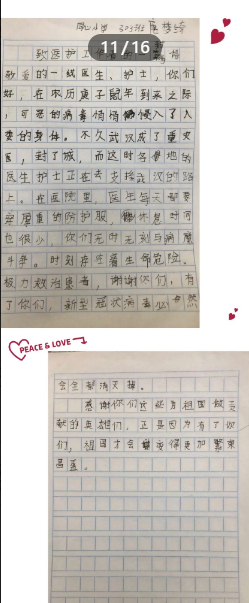 303班
致医护
11/16
敬爱的一线医生、护士,你们
好,在农历庚子鼠年到来之际
,可恶的病毒悄悄侵入了人
类的身体。不久武汉成了重灾
区,封了城,而这时各地的
医生护士正在去支援武汉的路
上。在医院里,医生每天都要
穿厚重的防护服,休息时间
也很少,你们无时无刻与病魔
斗争。时刻存在着生命危险。
极力救治患者,谢谢你们,有
了你们,新型冠状病毒必然
会全部消灭掉。
PEACE & LOVE
感谢你们这些为祖国做贡
献的英雄们,正是因为有了你
们,祖国才会变得更加繁荣
昌盛。